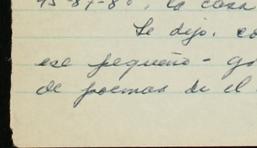 75-87-80, la casa
Se dijo, co
ese pequeño - go
de poemas de el